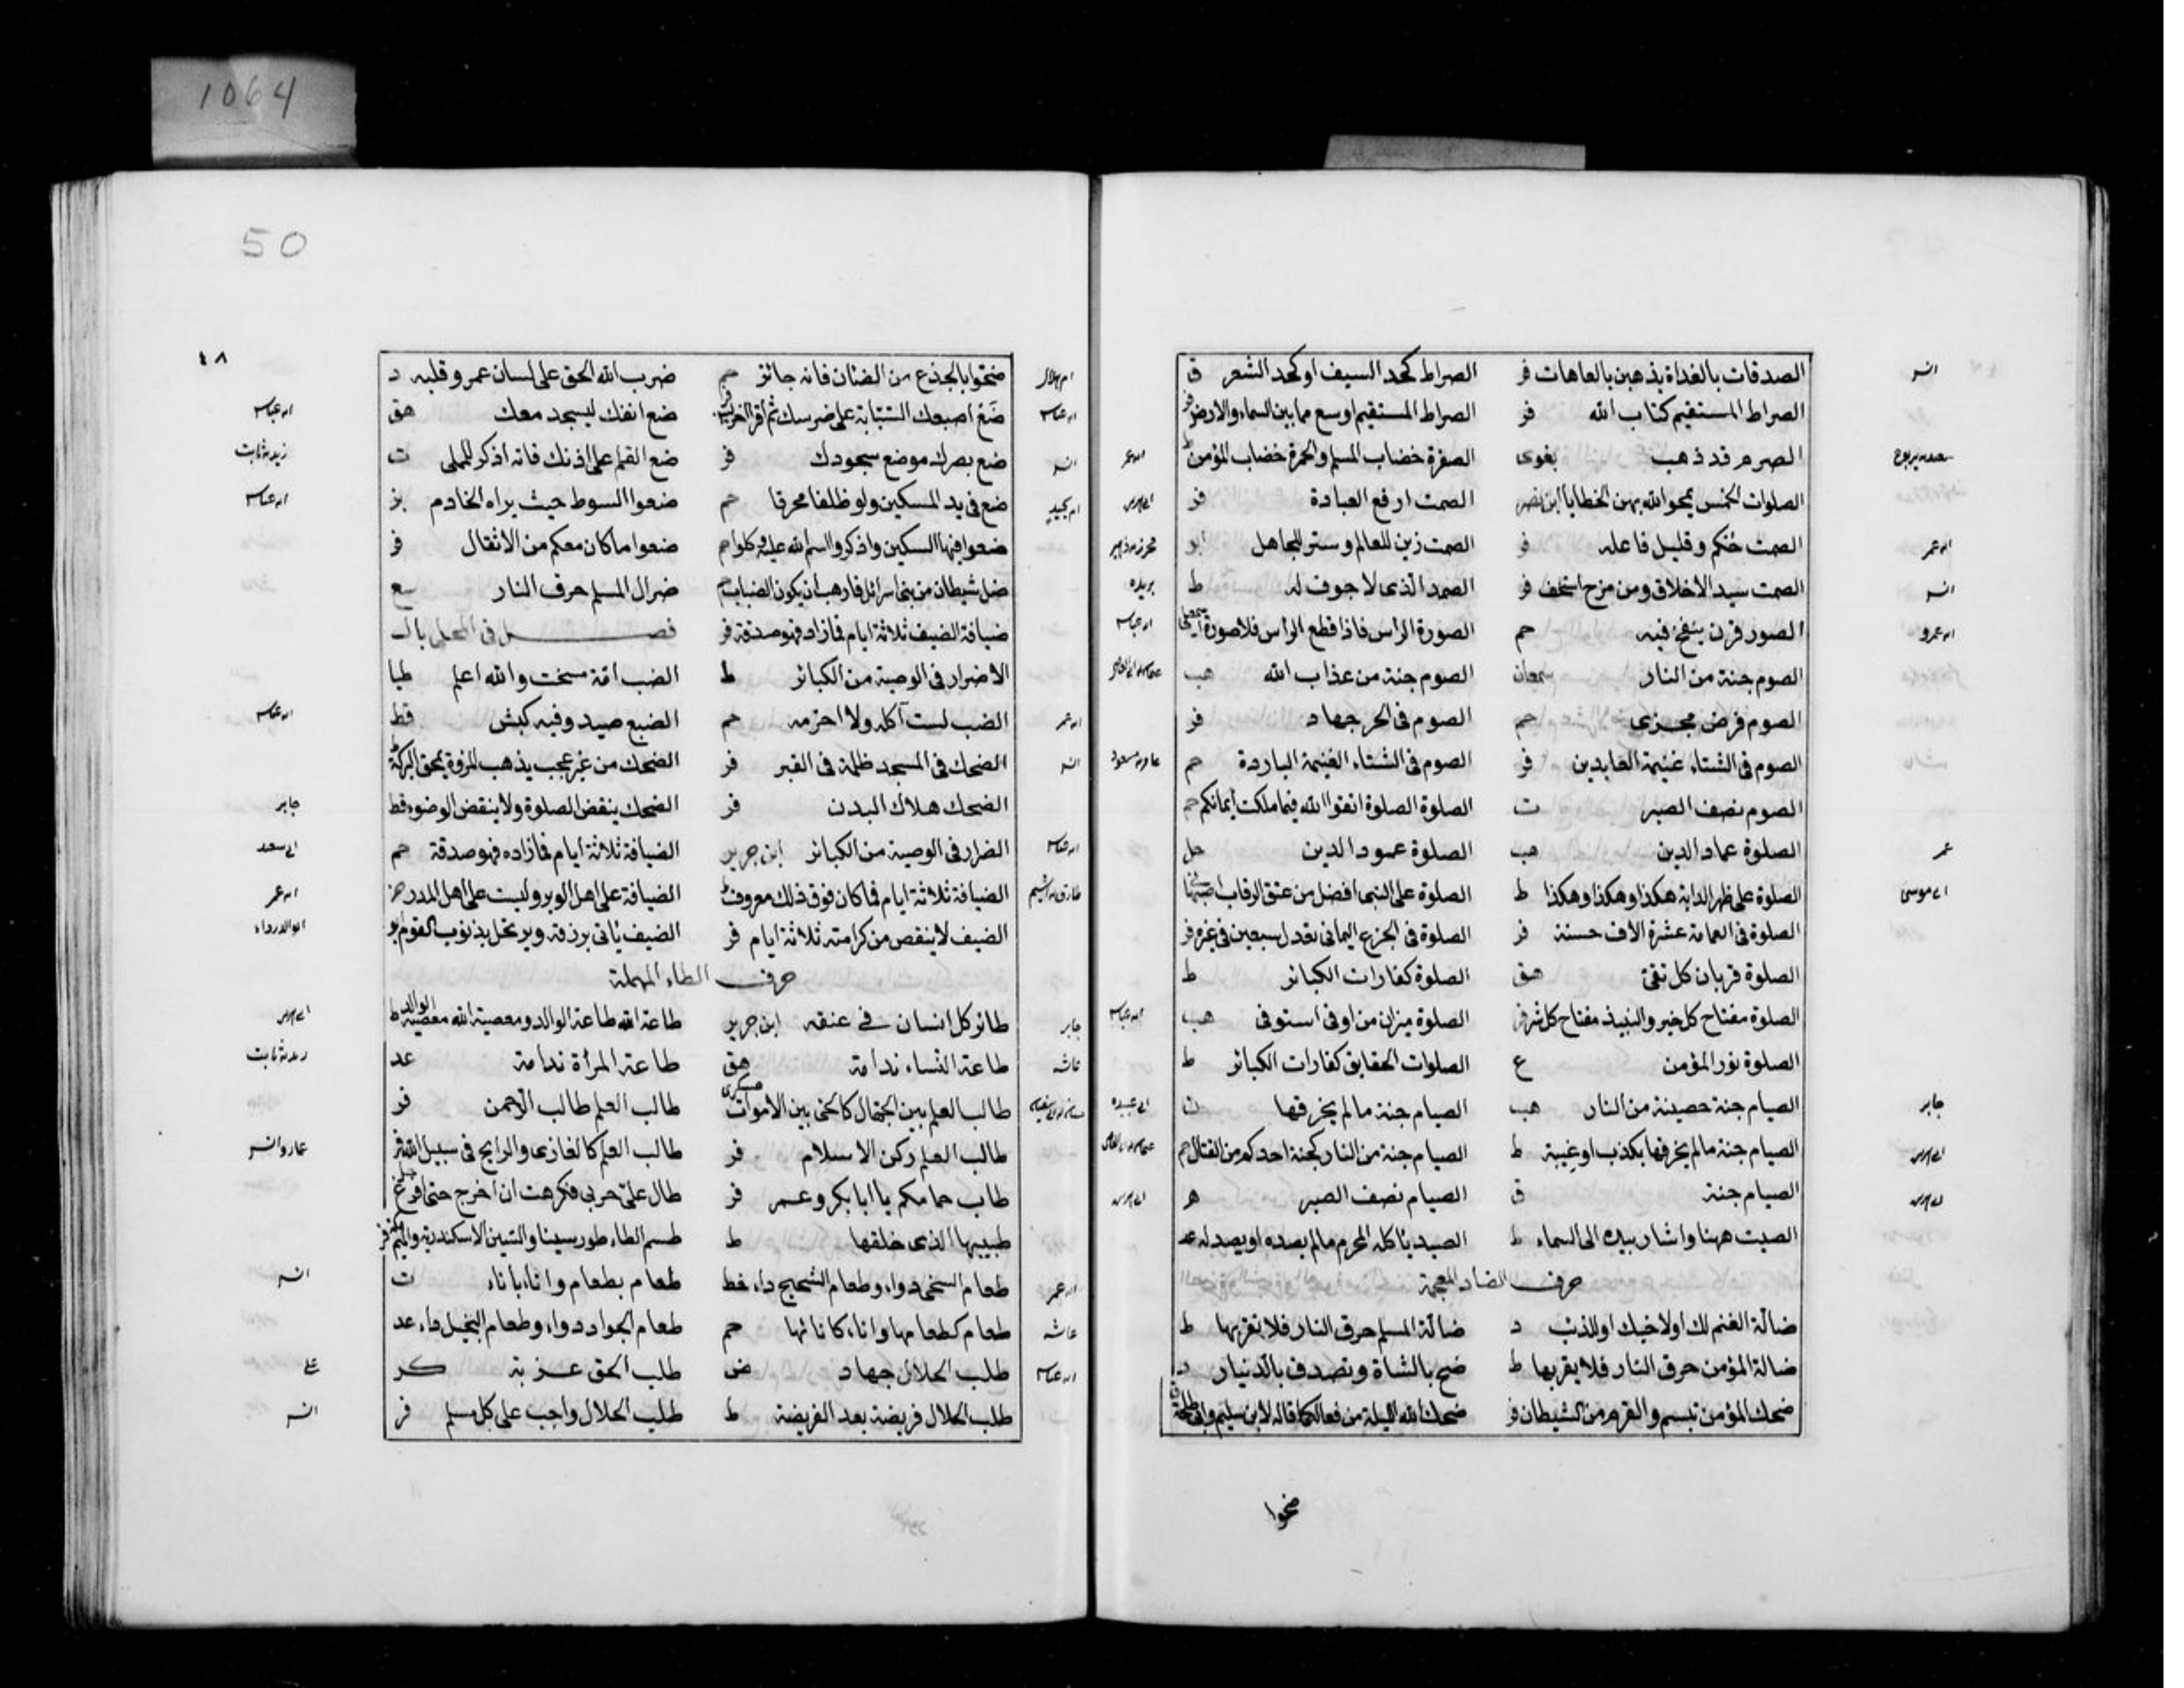 1064
50
٤٨
الصدقات بالغداة يذهبن بالعاهات فر الصراط كحد السيف او كحد الشعر ق
انس
الصراط المستقيم كتاب الله فر الصراط المستقيم اوسع مما بين السماء والارض فر
الصرم قد ذهب بغوى الصفرة خضاب المسلم والحمرة خضاب المؤمن ط
الصلوات الخمس يمحو الله بهن الخطايا ابن نصر الصمت ارفع العبادة فر
الصمت حكم وقليل فاعله فر الصمت زين للعالم وستر للجاهل ابو
ابن عمر
الصمت سيد الاخلاق ومن مزح استخف فر الصمد الذى لا جوف له ط
انس بريده
الصور قرن ينفخ فيه حم الصورة الراس فاذا قطع الراس فلا صورة
ابن عمرو ابن عباس
الصوم جنة من النار الصوم جنة من عذاب الله هب
الصوم فرض مجزى حم الصوم فى الحر جهاد فر
الصوم فى الشتاء غنيمة العابدين فر الصوم فى الشتاء الغنيمة الباردة حم
عامر بن مسعود
الصوم نصف الصبر ت الصلوة الصلوة اتقوا الله فيما ملكت ايمانكم حم
الصلوة عماد الدين هب الصلوة عمود الدين حل
عمر
الصلوة على ظهر الدابة هكذا وهكذا وهكذا ط الصلوة على النبى افضل من عتق الرقاب
ابى موسى
الصلوة فى العمامة عشرة الاف حسنة فر الصلوة فى الجزع اليمانى تعدل سبعين فى غيره فر
الصلوة قربان كل تقى هق الصلوة كفارات الكبائر ط
الصلوة مفتاح كل خير والنبيذ مفتاح كل شر فر الصلوة ميزان من اوفى استوفى هب
ابن عباس
الصلوة نور المؤمن ع الصلوات الحقايق كفارات الكبائر ط
الصيام جنة حصينة من النار هب الصيام جنة ما لم يخرقها ن
جابر ابى عبيده
الصيام جنة ما لم يخرقها بكذب او غيبة ط الصيام جنة من النار كجنة احدكم من القتال حم
الصيام جنة ق الصيام نصف الصبر ه
الصيت ههنا واشار بيده الى السماء ط الصيد ياكله المحرم ما لم يصده او يصد له عد
حرف الضاد المعجمة
ضالة الغنم لك او لاخيك او للذئب د ضالة المسلم حرق النار فلا تقربها ط
ضالة المؤمن حرق النار فلا يقربها ط ضح بالشاة وتصدق بالدينار د
ضحك المؤمن تبسم والقرم من الشيطان فر ضحك الله الليلة من فعالكما قاله لابن سليم وابى طلحة
ضحوا
ضحوا بالجذع من الضئان فانه جائز حم ضرب الله الحق على لسان عمر وقلبه د
ام هلال
ضع اصبعك السبابة على ضرسك ثم اقرا اخر ضع انفك ليسجد معك هق
ابن عباس ابن عباس
ضع بصرك موضع سجودك فر ضع القلم على اذنك فانه اذكر للملى ت
انس زيد بن ثابت
ضع فى يد المسكين ولو ظلفا محرقا حم ضعوا السوط حيث يراه الخادم بز
ام بجيد ابن عباس
ضعوا فيها السكين واذكروا اسم الله عليه وكلوا حم ضعوا ما كان معكم من الاثقال فر
ضل شيطان من بنى اسرائل فارهب ان يكون الضباب حم ضرال المسلم حرق النار سع
ضيافة الضيف ثلاثة ايام فما زاد فهو صدقة فر فصل فى المحلى بال
الاضرار فى الوصية من الكبائر ط الضب امة مسخت والله اعلم طيا
الضب لست آكله ولا احرمه حم الضبع صيد وفيه كبش قط
ابن عمر ابن عباس
الضحك فى المسجد ظلمة فى القبر فر الضحك من غير عجب يذهب المروة يمحق البركة
انس
الضحك هلاك البدن فر الضحك ينقض الصلوة ولا ينقض الوضوء قط
جابر
الضرار فى الوصية من الكبائر ابن جرير الضيافة ثلاثة ايام فما زاده فهو صدقة حم
ابن عباس ابى سعد
الضيافة ثلاثة ايام فما كان فوق ذلك معروف ط الضيافة على اهل الوبر وليست على اهل المدر
طارق بن اشيم ابن عمر
الضيف لا ينقص من كرامته ثلاثة ايام فر الضيف ياتى برزقه ويرتحل بذنوب القوم ابو
ابو الدرداء
حرف الطاء المهملة
طائر كل انسان فى عنقه ابن جرير طاعة الله طاعة الوالد ومعصية الله معصية الوالد ط
جابر
طاعة النساء ندامة هق طاعة المرأة ندامة عد
عائشه زيد بن ثابت
طالب العلم بين الجهال كالحى بين الاموات عسكرى طالب العلم طالب الرحمن فر
طالب العلم ركن الاسلام فر طالب العلم كالغازى والرايح فى سبيل الله فر
عمار وانس
طاب حمامكم يا ابا بكر وعمر فر طال على حزبى فكرهت ان اخرج حتى افرغ
طبيبها الذى خلقها ط طسم الطاء طور سينا والسين الاسكندرية والميم مكة فر
طعام السخى دواء وطعام الشحيح داء خط طعام بطعام واناء باناء ت
ابن عمر انس
طعام كطعامها واناء كانائها حم طعام الجواد دواء وطعام البخيل داء عد
عائشه
طلب الحلال جهاد ض طلب الحق غربة كر
ابن عباس على
طلب الحلال فريضة بعد الفريضة ط طلب الحلال واجب على كل مسلم فر
انس